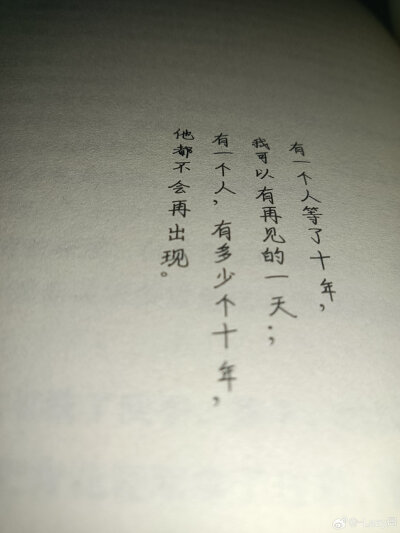 有一个人等了十年，
我可以有再见的一天；
有一个人，有多少个十年，
他都不会再出现。